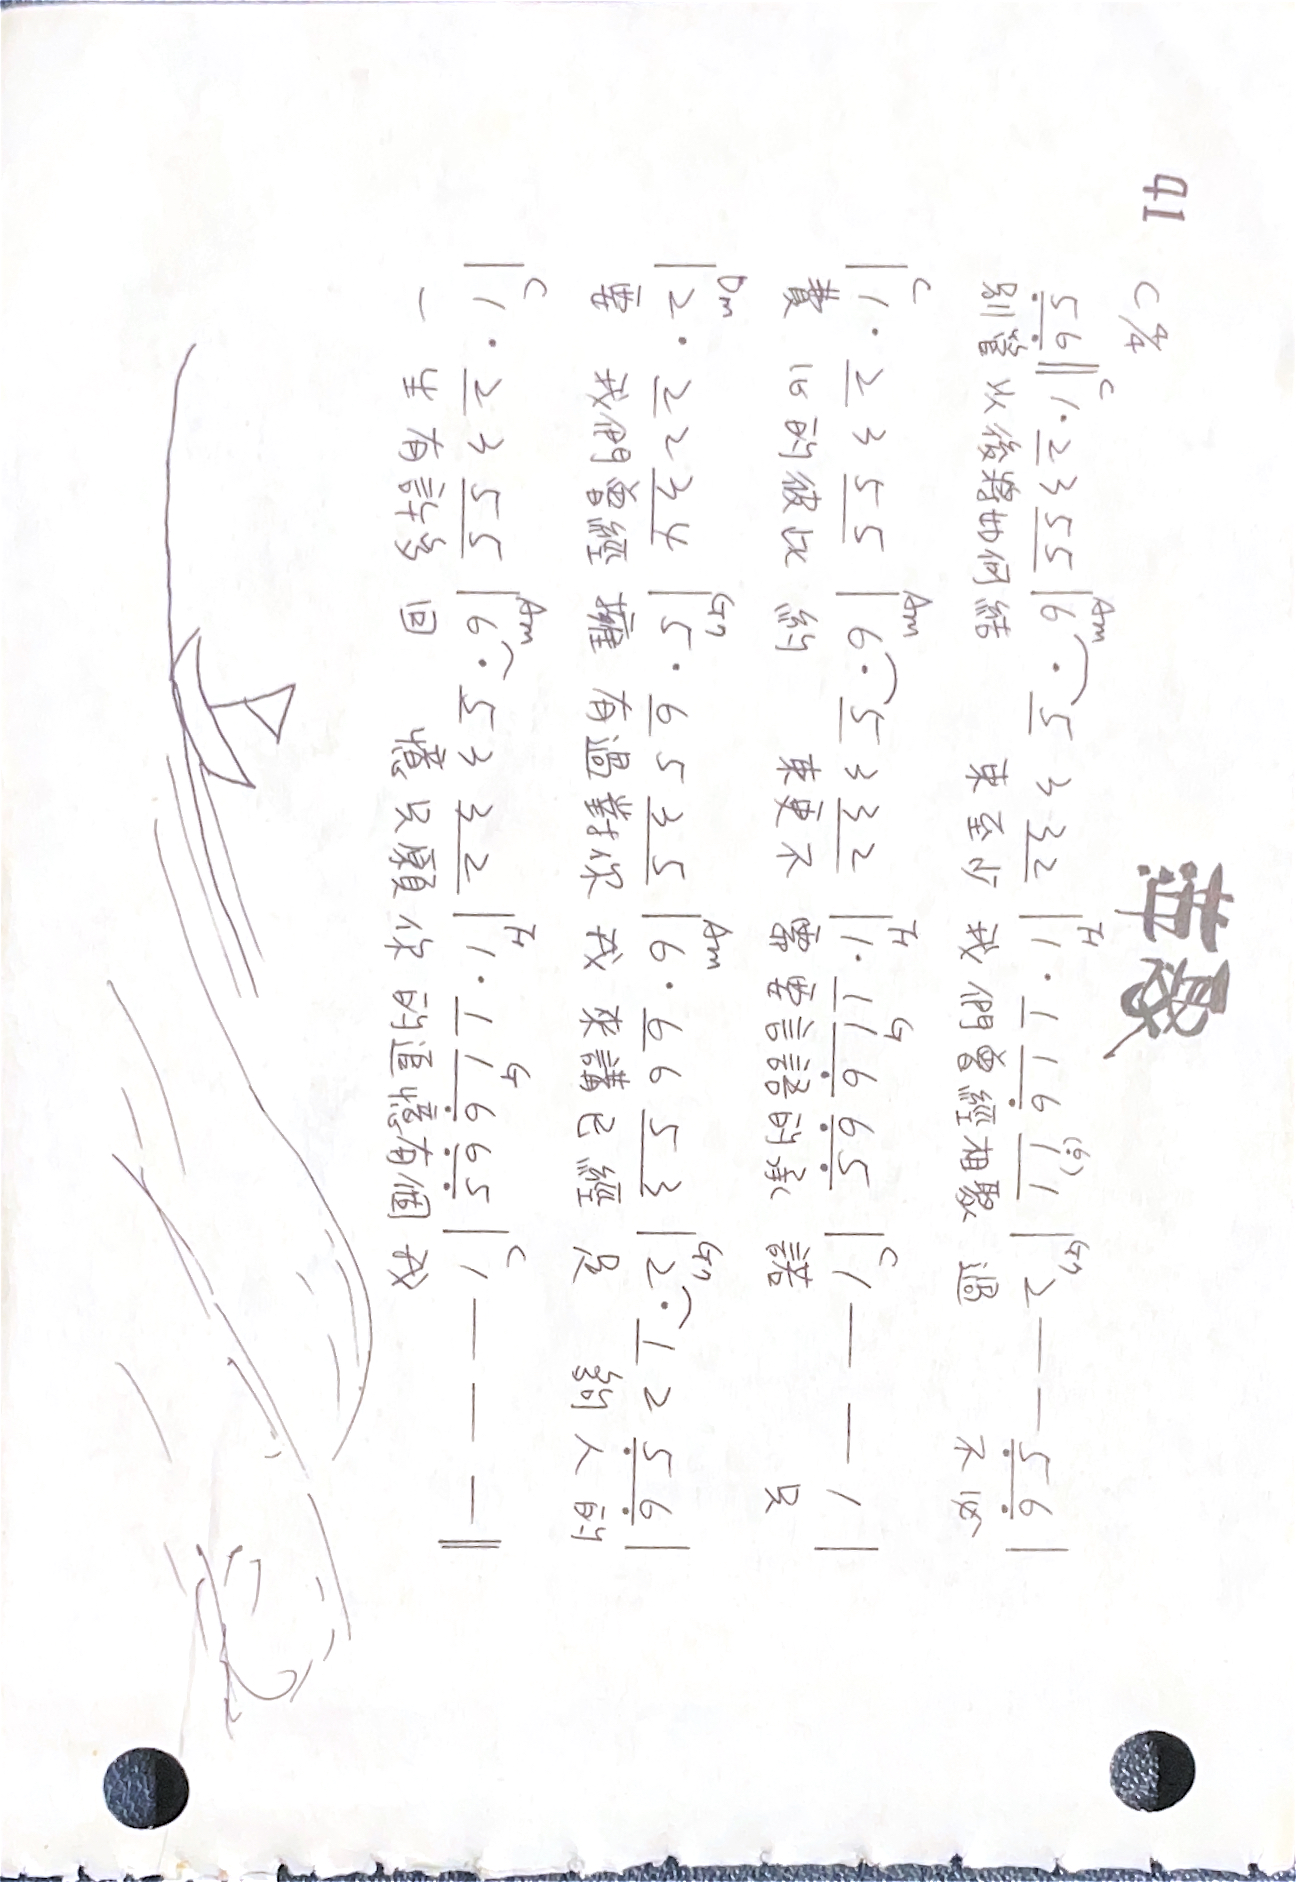 萍聚
41 C 4/4
C Am F G7
5 6 || 1 · 2 3 5 5 | 6 · 5 3 3 2 | 1 · 1 1 6 (6) 1 1 | 2 — — 5 6 |
別管以後將如何結 束至少 我們曾經相聚 過 不必
C Am F G C
| 1 · 2 3 5 5 | 6 · 5 3 3 2 | 1 · 1 1 6 6 5 | 1 — — 1 |
費 心的彼此 約 束更不 需要言語的承 諾 只
Dm G7 Am G7
| 2 · 2 2 3 4 | 5 · 6 5 3 5 | 6 · 6 6 5 3 | 2 · 1 2 5 6 |
要 我們曾經 擁 有過對你 我 來講已經 足 夠人的
C Am F G C
| 1 · 2 3 5 5 | 6 · 5 3 3 2 | 1 · 1 1 6 6 5 | 1 — — — ||
一 生有許多 回 憶只願 你 的追憶有個 我